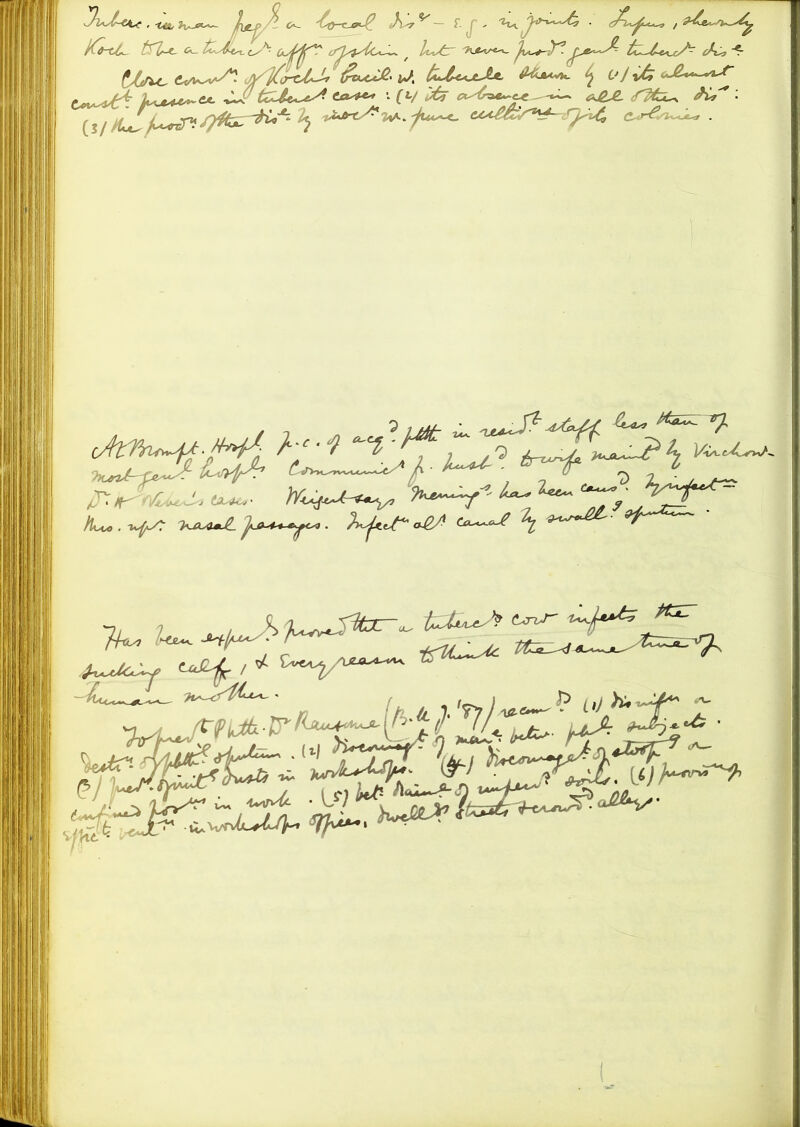 Tuberc. in man freqly a local dise – e.g. in joints. Lupus, shewn by
Koch to be a tubercr affn of skin, but never prods genl tubercr dise
Close connn of Koch's bacil. w. tubercle shewn by (1) its almost
constt presence in tubercr cases : (2) its absence in all other dise :
(3) the prodn of the dise by inocn w. pure cultivns of its colonies.
At Brompt. Hospl p.c. of acqd phth in residt staff less than of
most genl hospls Communicn fr. husbd to wife maintd by Virchow
Dr H Weber's cases. Weigert says Mening. has been causd by infectn
thro. upr nasal passages. Infectn all canal by swallg sputum.
Has been experly proved tht a tubercr cow infects the
sucking calf, & every reason to think the same true of
human mother.
To prevt Phth. Dr Ransome (B.M.J. '87) recomds (1) disinfn or
destrn of phthl sputum. (2) discouragt of marre betw. phl subjects.
(3) prevn of irritg dusts in workshops. (4) discouragt of stoopg or
confined posns in work. (5) betr drainge of impervs soils. (6) provisn of
efficᵗ ventn in workshops offices, dwellgs streets & crowd. alleys.